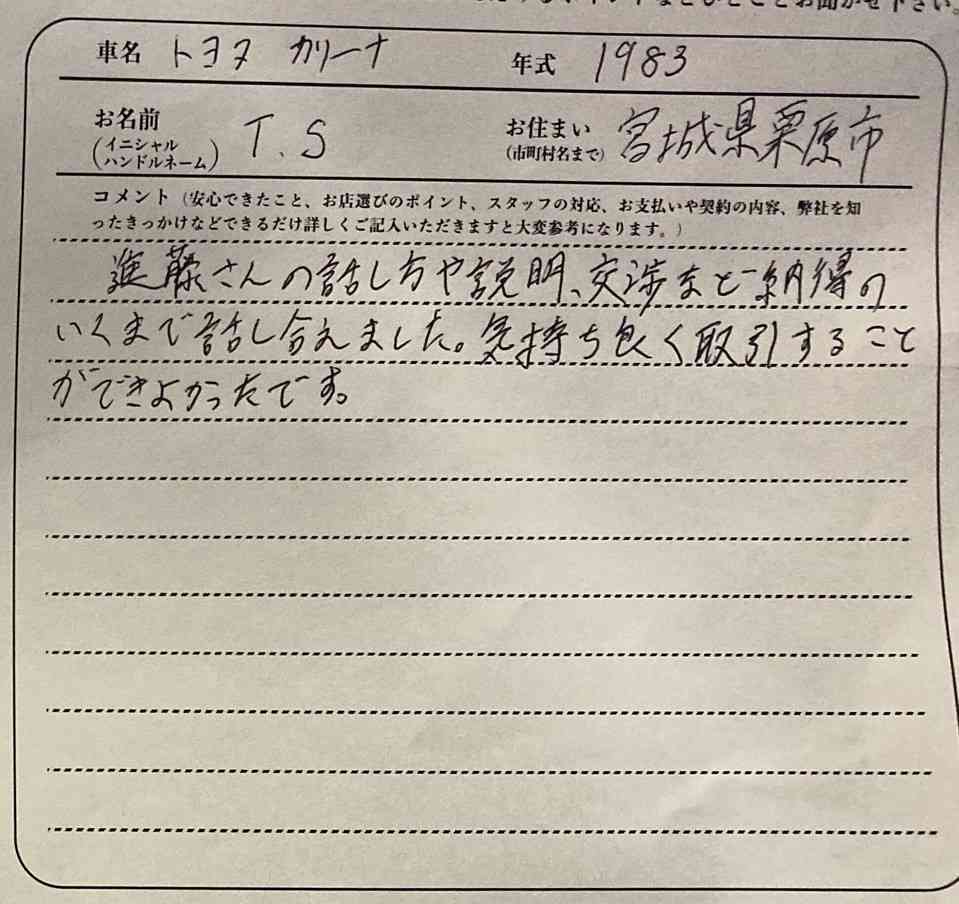 お聞かせ下さい。
車名 トヨタ カリーナ 年式 1983
お名前 (イニシャル ハンドルネーム) T.S お住まい (市町村名まで) 宮城県栗原市
コメント（安心できたこと、お店選びのポイント、スタッフの対応、お支払いや契約の内容、弊社を知
ったきっかけなどできるだけ詳しくご記入いただきますと大変参考になります。）
進藤さんの話し方や説明、交渉まど納得の
いくまで話し合えました。気持ち良く取引すること
ができよかったです。